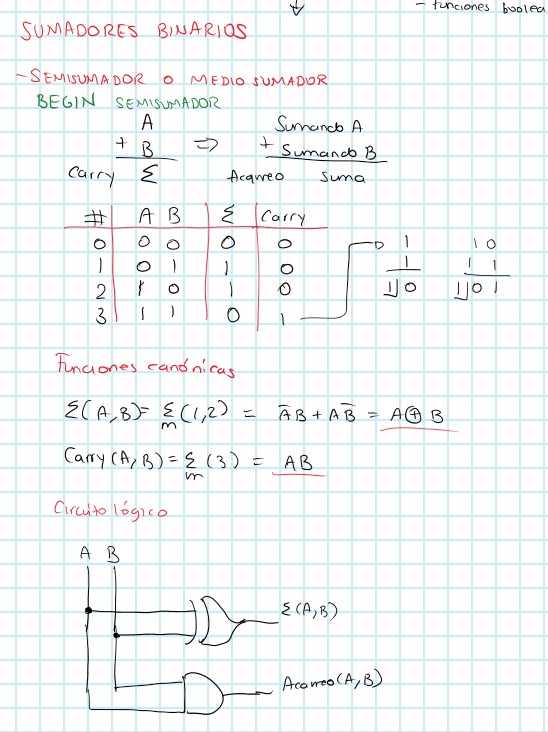 - funciones boolea
SUMADORES BINARIOS
- SEMISUMADOR O MEDIO SUMADOR
BEGIN SEMISUMADOR
A Sumando A
+ B ⇒ + Sumando B
Carry Σ Acarreo suma
# A B Σ Carry
0 0 0 0 0 1 10
1 0 1 1 0 1 11
2 1 0 1 0 1⌋0 1⌋01
3 1 1 0 1
Funciones canónicas
Σ(A,B)= Σm(1,2) = A̅B + AB̅ = A⊕B
Carry(A,B)= Σm(3) = AB
Circuito lógico
A B
Σ(A,B)
Acarreo(A,B)